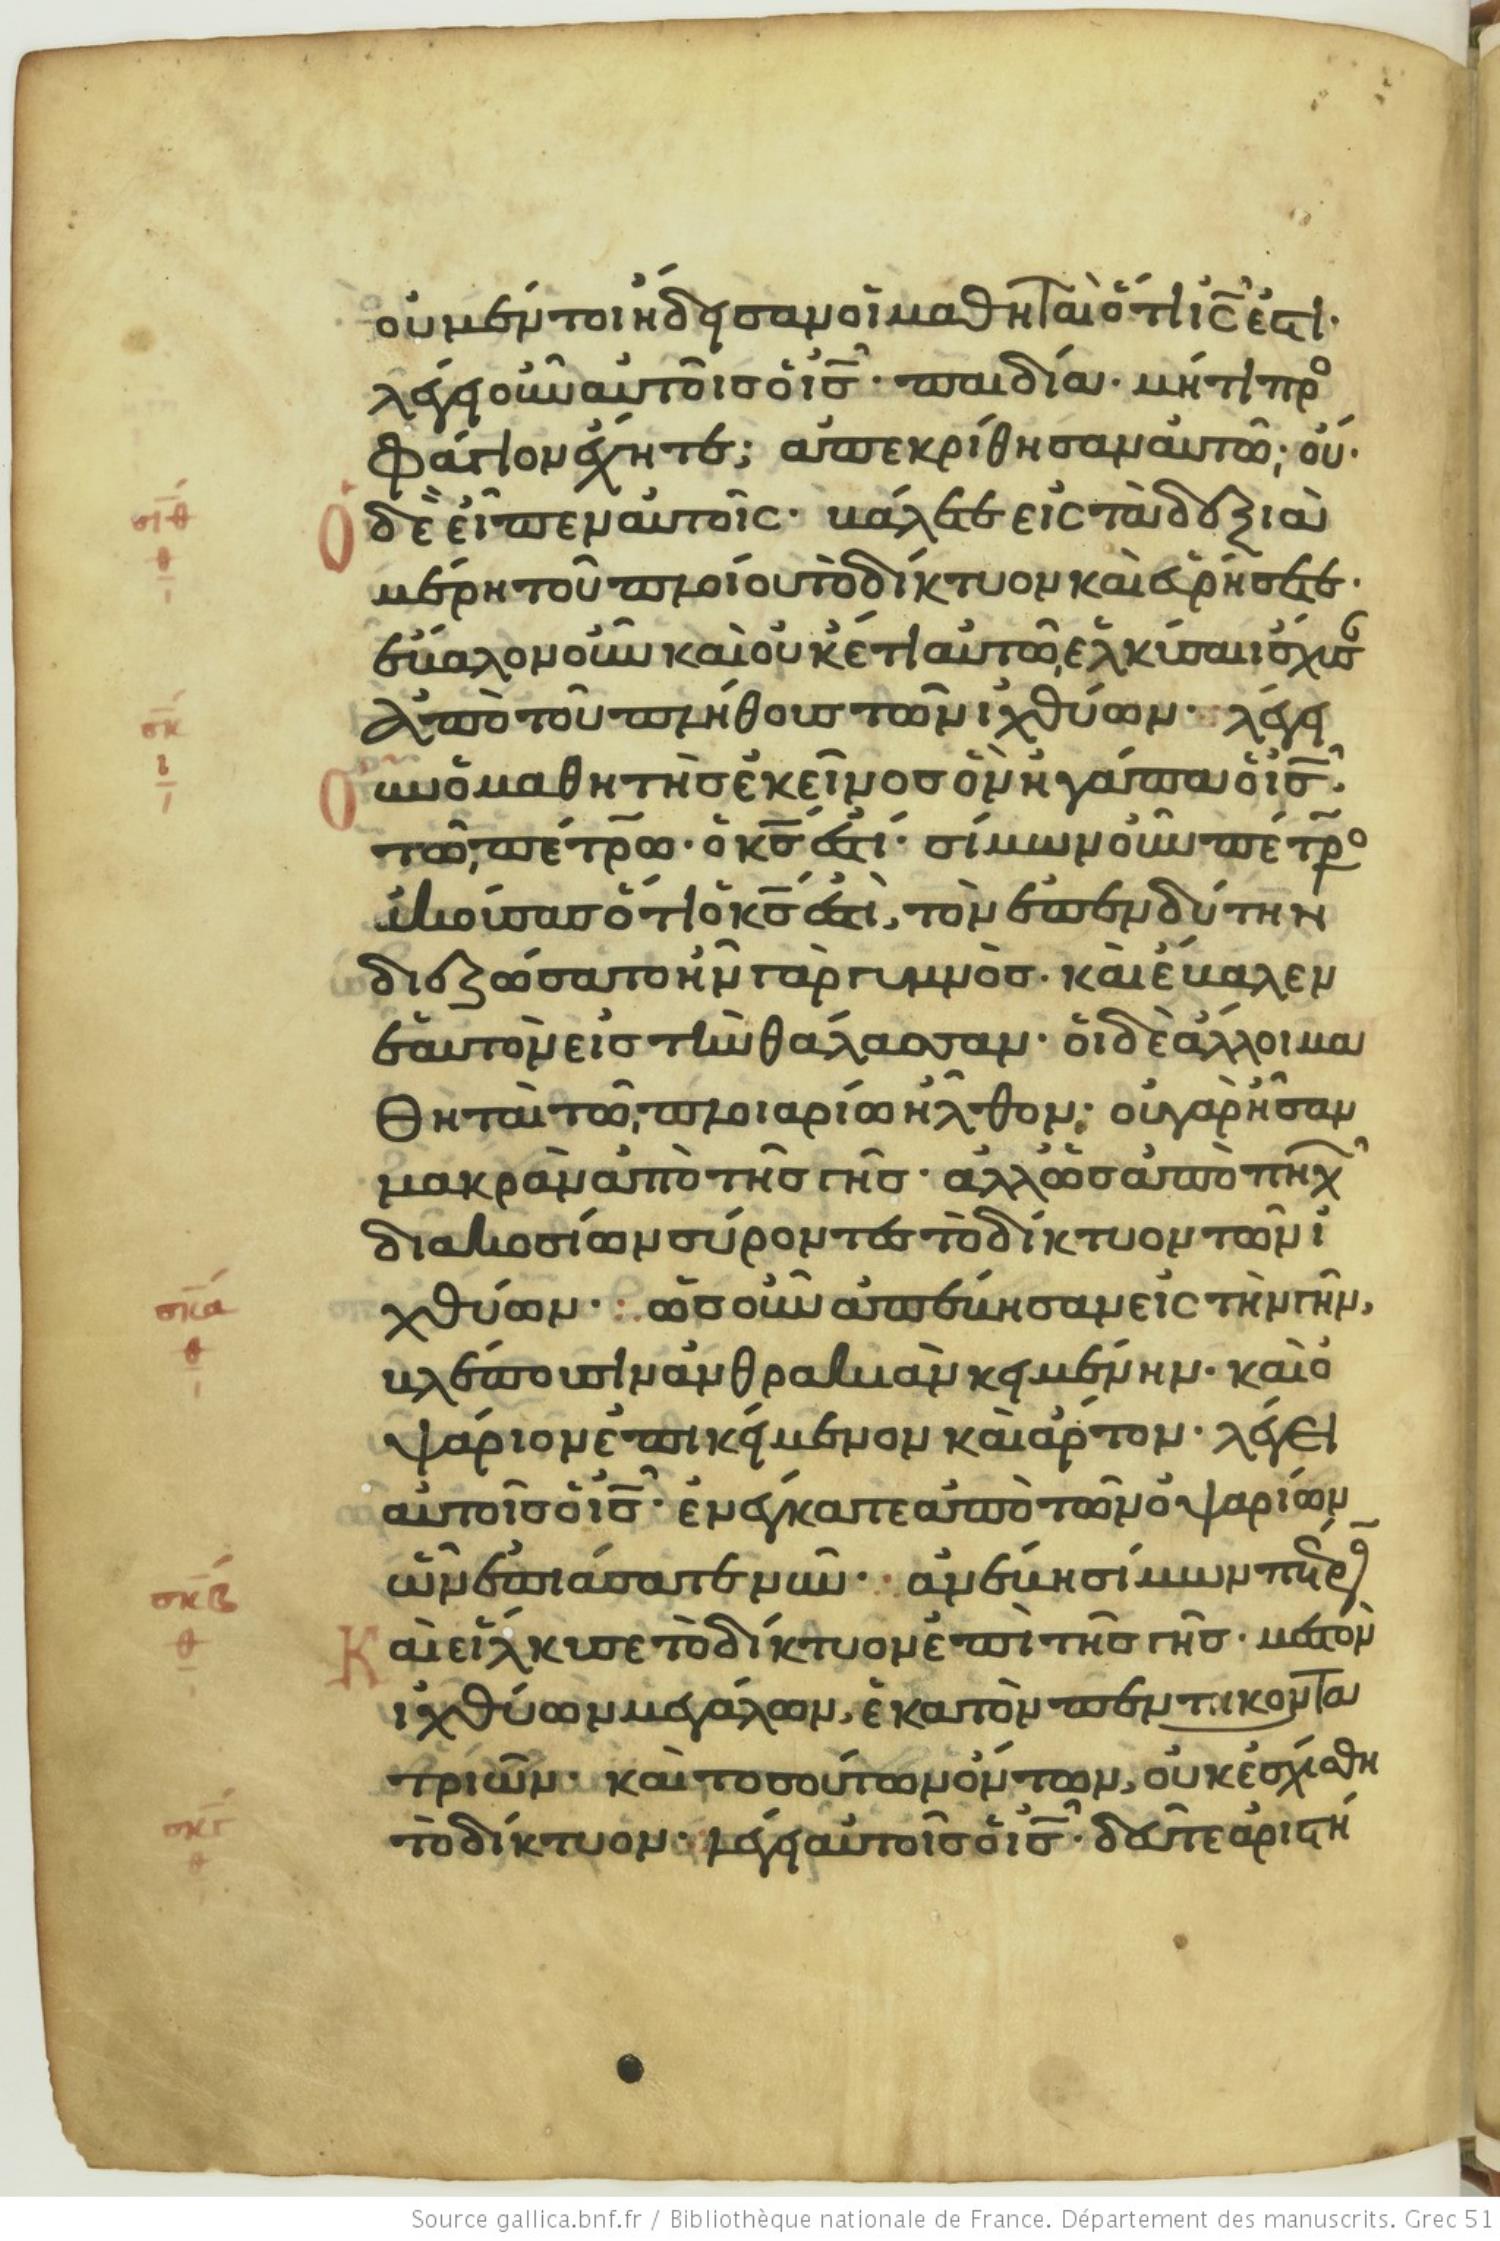 οὐ μέντοι ἤδεισαν οἱ μαθηταὶ ὅτι ις ἐστι·
λέγει οὖν αὐτοῖς ὁ ις· παιδία· μή τι προ
σιθ
φάγιον ἔχητε; ἀπεκρίθησαν αὐτῶ; οὔ·
θ
Ὁ δὲ εἶπεν αὐτοῖς· βάλετε εἰς τὰ δεξιὰ
μέρη τοῦ πλοίου τὸ δίκτυον καὶ εὑρήσετε·
ἔβαλον οὖν καὶ οὐκέτι αὐτῶ, ἑλκύσαι ἴσχυσ
σκ
ἀπὸ τοῦ πλήθους τῶν ἰχθύων· λέγει
ι
Οὖν ὁ μαθητὴς ἐκεῖνος ὃν ἠγάπα ὁ ις·
τῶ, πέτρω· ὁ κς ἐστί· σίμων οὖν πέτρο
ἀκούσας ὅτι ὁ κς ἐστὶ, τὸν ἐπενδύτην
διεζώσατο ἦν γὰρ γυμνὸς· καὶ ἔβαλεν
ἑαυτὸν εἰς τὴν θάλασσαν· οἱ δὲ ἄλλοι μα
θηταὶ τῶ, πλοιαρίω ἦλθον; οὐ γὰρ ἦσαν
μακρὰν ἀπὸ τῆς γῆς· ἀλλ ὡς ἀπὸ πηχ
διακοσίων σύροντες τὸ δίκτυον τῶν ἰ
σκα
χθύων· ὡς οὖν ἀπέβησαν εἰς τὴν γῆν,
θ
βλέπουσιν ἀνθρακιὰν κειμένην· καὶ ὀ
ψάριον ἐπικείμενον καὶ ἄρτον· λέγει
αὐτοῖς ὁ ις· ἐνέγκατε ἀπὸ τῶν ὀψαρίων
σκβ
ὧν ἐπιάσατε νῦν· ἀνέβη σίμων πέτρος
θ
Καὶ εἵλκυσε τὸ δίκτυον ἐπὶ τῆς γῆς· μεστὸν
ἰχθύων μεγάλων, ἑκατὸν πεντικοντα
τριῶν· καὶ τοσούτων ὄντων, οὐκ ἐσχίσθη
σκγ
τὸ δίκτυον· λέγει αὐτοῖς ὁ ις· δεῦτε ἀριστή
θ
Source gallica.bnf.fr / Bibliothèque nationale de France. Département des manuscrits. Grec 51